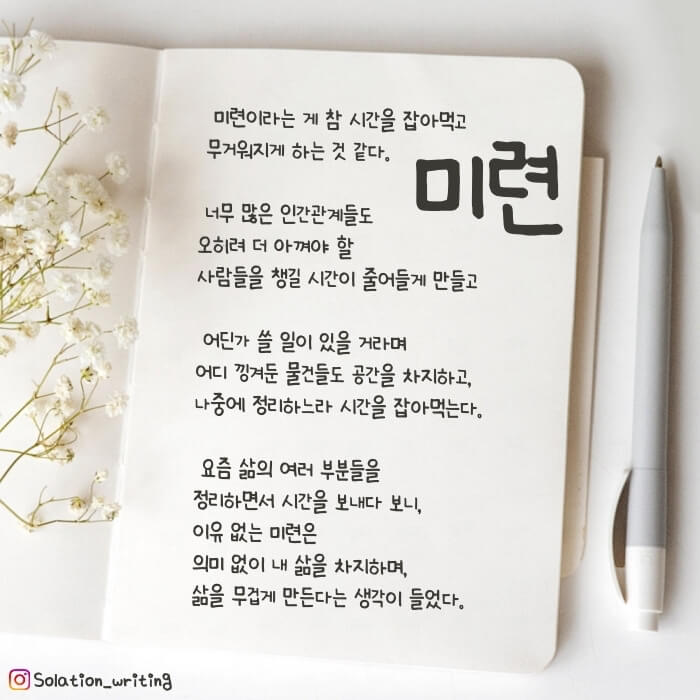 미련
미련이라는 게 참 시간을 잡아먹고
무거워지게 하는 것 같다.
너무 많은 인간관계들도
오히려 더 아껴야 할
사람들을 챙길 시간이 줄어들게 만들고
어딘가 쓸 일이 있을 거라며
어디 낑겨둔 물건들도 공간을 차지하고,
나중에 정리하느라 시간을 잡아먹는다.
요즘 삶의 여러 부분들을
정리하면서 시간을 보내다 보니,
이유 없는 미련은
의미 없이 내 삶을 차지하며,
삶을 무겁게 만든다는 생각이 들었다.
Solation_writing